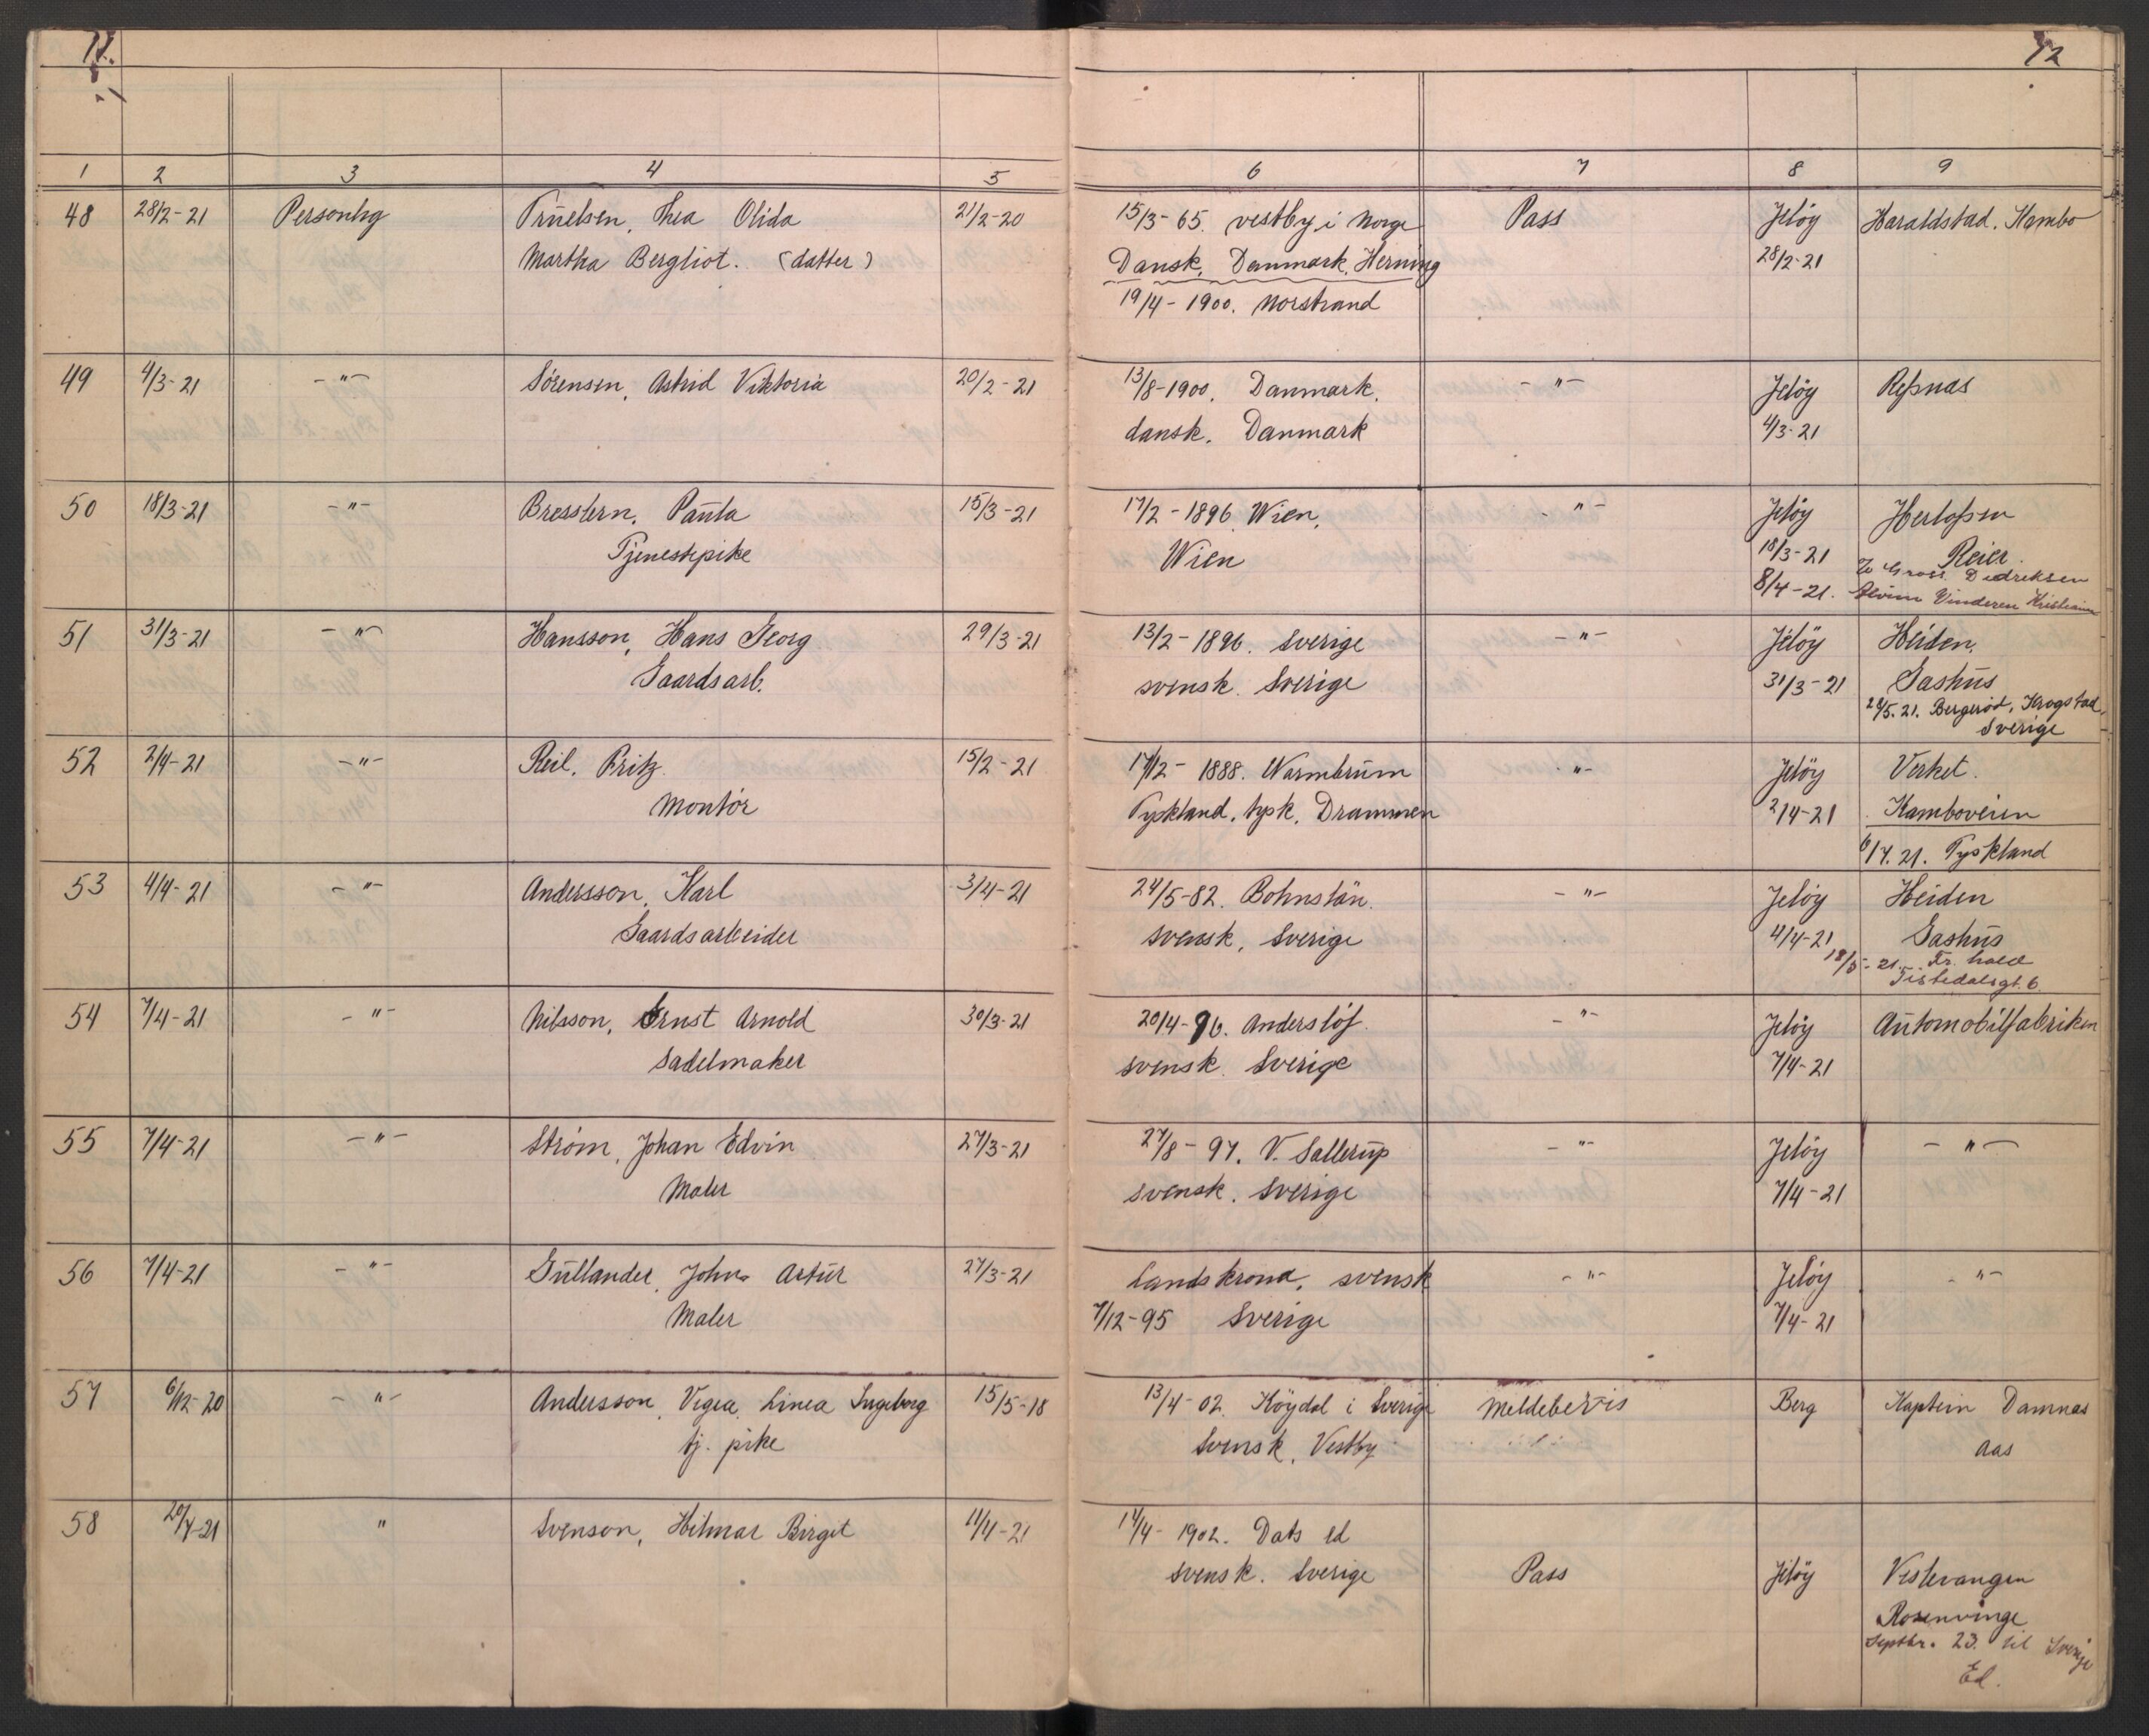 11.
12
1 2 3 4 5 6 7 8 9
48 28/2-21 Personlig Truelsen, Thea Olida 21/2-20 15/3-65. Vestby i Norge Pass Jeløy Haraldstad. Kambo
Martha Bergliot. (datter) Dansk, Danmark, Herning 28/2-21
19/4-1900. Norstrand
49 4/3-21 -"- Sørensen, Astrid Viktoria 20/2-21 13/8-1900. Danmark. -"- Jeløy Refsnas
dansk. Danmark 4/3-21
50 18/3-21 -"- Bresslern, Paula 15/3-21 17/2-1896 Wien, -"- Jeløy Herlofsen
Tjenestepike Wien 18/3-21 Reier.
8/4-21. Gross. Didreksen
Vinderen Kristiania
51 31/3-21 -"- Hansson, Hans Georg 29/3-21 13/2-1896. Sverige -"- Jeløy Heiden,
Gaardsarb. svensk. Sverige 31/3-21 Gashus
28/5.21. Bergerød, Krogstad,
Sverige
52 2/4-21 -"- Reil, Fritz 15/2-21 17/12-1888. Warmbrum "- Jeløy Verket.
Montør Tyskland, tysk, Drammen 2/4-21 Kamboveien
6/7.21. Tyskland
53 4/4-21 -"- Andersson, Karl 3/4-21 24/5-82. Bohuslän. -"- Jeløy Heiden
Gaardsarbeider svensk, Sverige 4/4-21 Gashus
18/5-21. Fr. hald
Tistedalsgt. 6
54 7/4-21 -"- Nilsson, Ernst Arnold 30/3-21 20/4-96. Anderslöf. -"- Jeløy Automobilfabriken
Sadelmaker svensk. Sverige 7/4-21
55 7/4-21 -"- Strøm, Johan Edvin 27/3-21 27/8-97. V. Sallerup -"- Jeløy -"-
Maler svensk. Sverige 7/4-21
56 7/4-21 -"- Gullander, John Artur 27/3-21 Landskrona, svensk -"- Jeløy -"-
Maler 7/12-95 Sverige 7/4-21
57 6/12-20 -"- Andersson, Vigea Linea Ingeborg 15/5-18 13/4-02. Köydal i Sverige Meldebevis Berg Kaptein Damnas
tj. pike Svensk, Vestby Aas
58 20/4-21 " Svenson, Hilmar Birgit 11/4-21 14/4-1902. Dals Ed
svensk. Sverige Pass Jeløy Vestevangen
Rosenvinge
Septbr. 23. til Sverige
Ed.